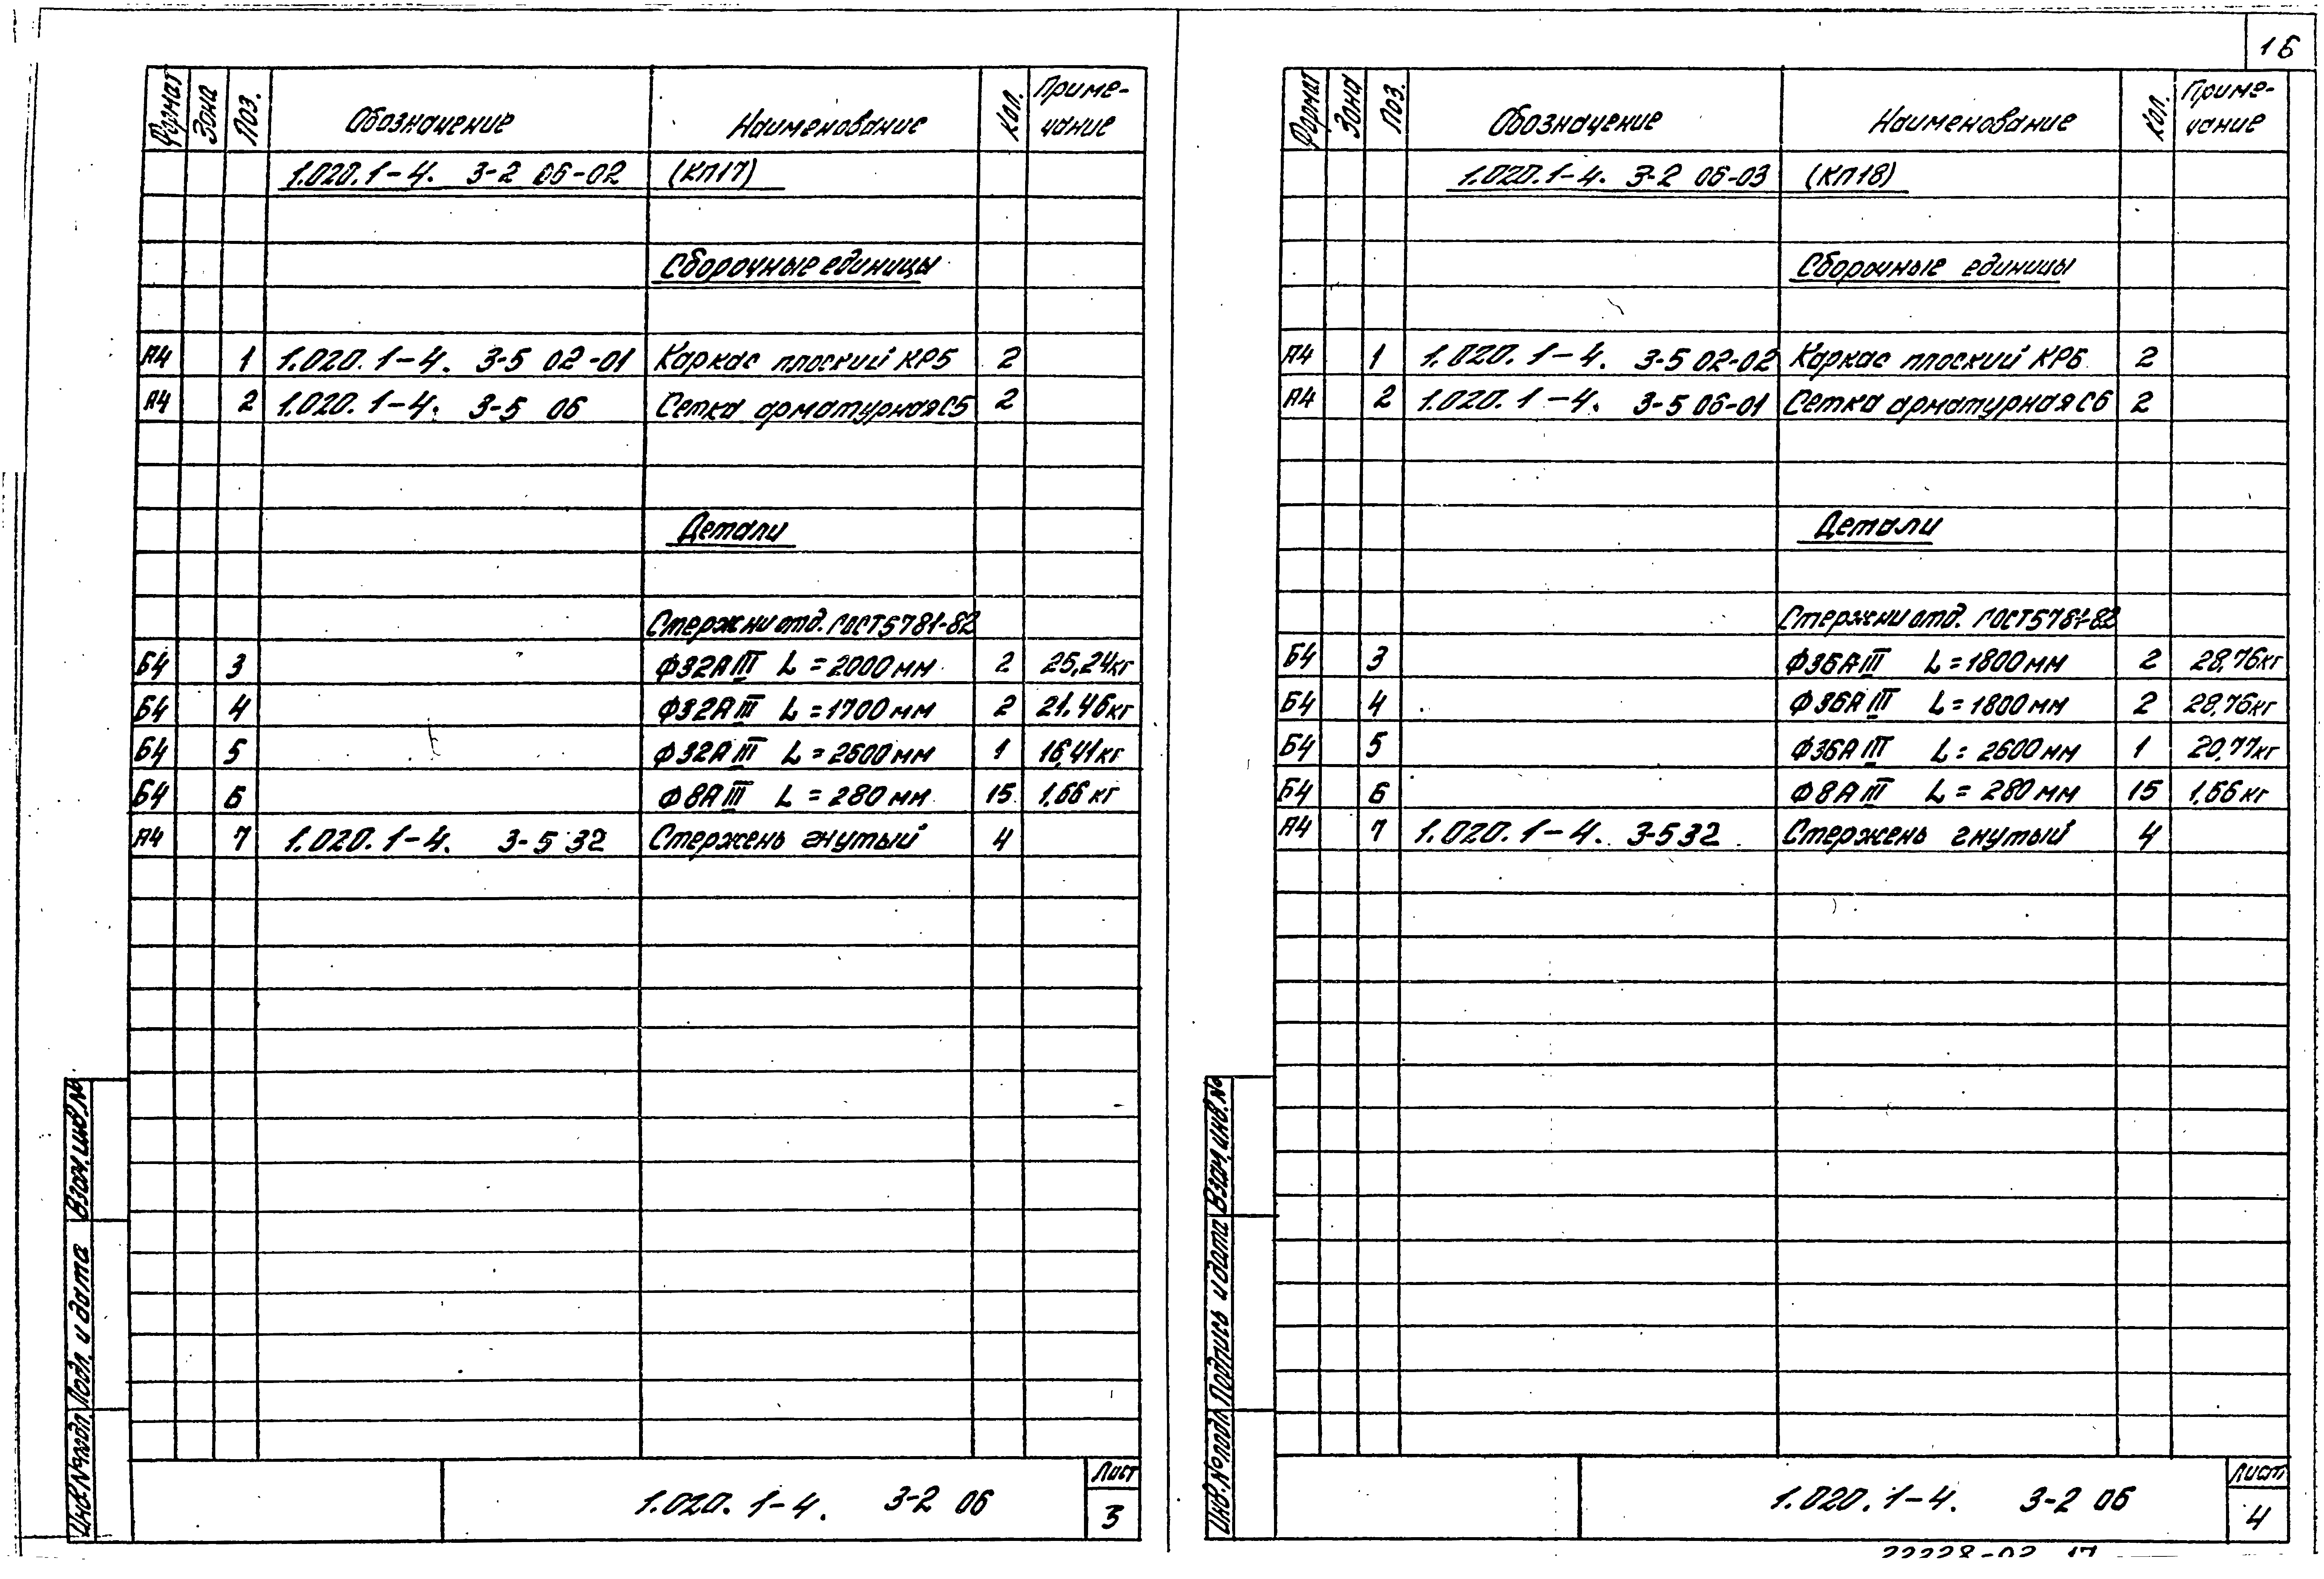 16
Формат Зона Поз. Обозначение Наименование Кол. Приме-
чание
1.020.1-4. 3-2 06-02 (КП17)
Сборочные единицы
А4 1 1.020.1-4. 3-5 02-01 Каркас плоский КР5 2
А4 2 1.020.1-4. 3-5 06 Сетка арматурная С5 2
Детали
Стержни отд. ГОСТ 5781-82
Б4 3 Ф32АIII L=2000мм 2 25,24кг
Б4 4 Ф32АIII L=1700мм 2 21,46кг
Б4 5 Ф32АIII L=2600мм 1 16,41кг
Б4 6 Ф8АIII L=280мм 15 1,66кг
А4 7 1.020.1-4. 3-5 32 Стержень гнутый 4
Взам.инв.№
Подп. и дата
Инв.№подл.
1.020.1-4. 3-2 06
Лист
3
Формат Зона Поз. Обозначение Наименование Кол. Приме-
чание
1.020.1-4. 3-2 06-03 (КП18)
Сборочные единицы
А4 1 1.020.1-4. 3-5 02-02 Каркас плоский КР6 2
А4 2 1.020.1-4. 3-5 06-01 Сетка арматурная С6 2
Детали
Стержни отд. ГОСТ 5781-82
Б4 3 Ф36АIII L=1800мм 2 28,76кг
Б4 4 Ф36АIII L=1800мм 2 28,76кг
Б4 5 Ф36АIII L=2600мм 1 20,77кг
Б4 6 Ф8АIII L=280мм 15 1,66кг
А4 7 1.020.1-4. 3-5 32 Стержень гнутый 4
Взам.инв.№
Подпись и дата
Инв.№подл.
1.020.1-4. 3-2 06
Лист
4
22228-02 17